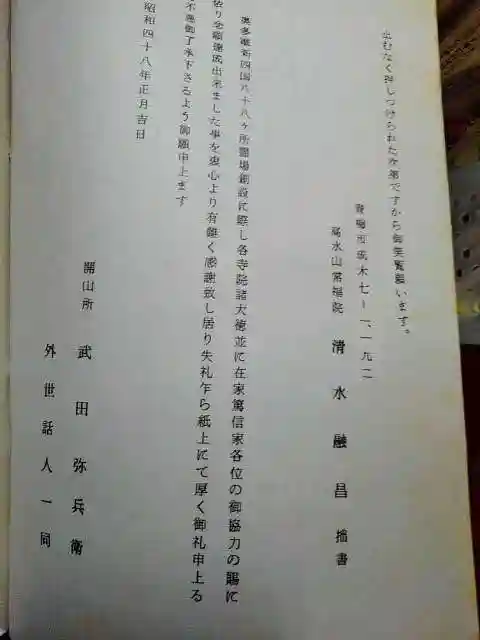 止むなく押しつけられた次第ですから御笑覧願います。
青梅市成木七ー一、一九二
高水山常福院 清水融昌 拙書
奥多摩新四国八十八ヶ所霊場創設に際し各寺院諸大徳並に在家篤信家各位の御協力の賜に
依り全願達成出来ました事を衷心より有難く感謝致し居り失礼乍ら紙上にて厚く御礼申上る
不悪御了承下さるよう御願申上ます
昭和四十八年正月吉日
開山所 武田弥兵衛
外世話人一同